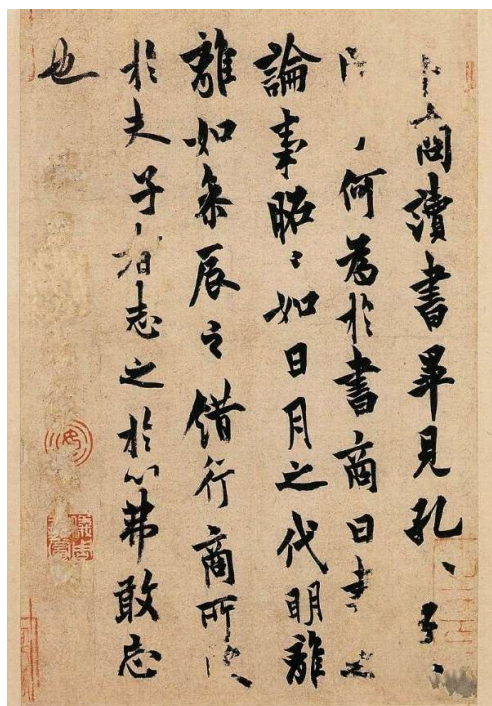 商讀書畢見孔〻子〻
何為於書商曰書之
論事昭〻如日月之代明離
離如參辰之錯行商所受
於夫子者志之於心弗敢忘
也